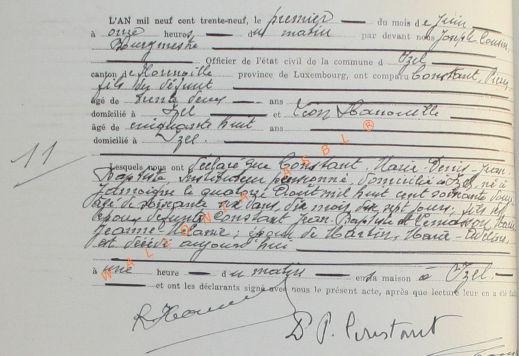 L'AN mil neuf cent trente-neuf, le premier du mois de juin
à onze heures du matin par devant nous Joseph
Bourgmestre
Officier de l'état civil de la commune d Izel
canton de Florenville province de Luxembourg, ont comparu Constant,
fils du défunt
âgé de trente deux ans
domicilié à Izel et Léon
âgé de cinquante huit ans
domicilié à Izel
11
Lesquels nous ont déclaré que Constant, Marie Denis Jean
Baptiste, instituteur pensionné, domicilié à Izel, né à
Jamoigne le quatorze août mil huit cent soixante
âgé de soixante six ans dix mois dix sept jours, fils des
époux défunts Constant Jean-Baptiste et
Jeanne Mélanie; époux de Martin, Marie
est décédé aujourd'hui
à une heure du matin en sa maison à Izel.
et ont les déclarants signé avec nous le présent acte, après que lecture leur en a été
Dr P. Constant
WALLONIA ASBL ®